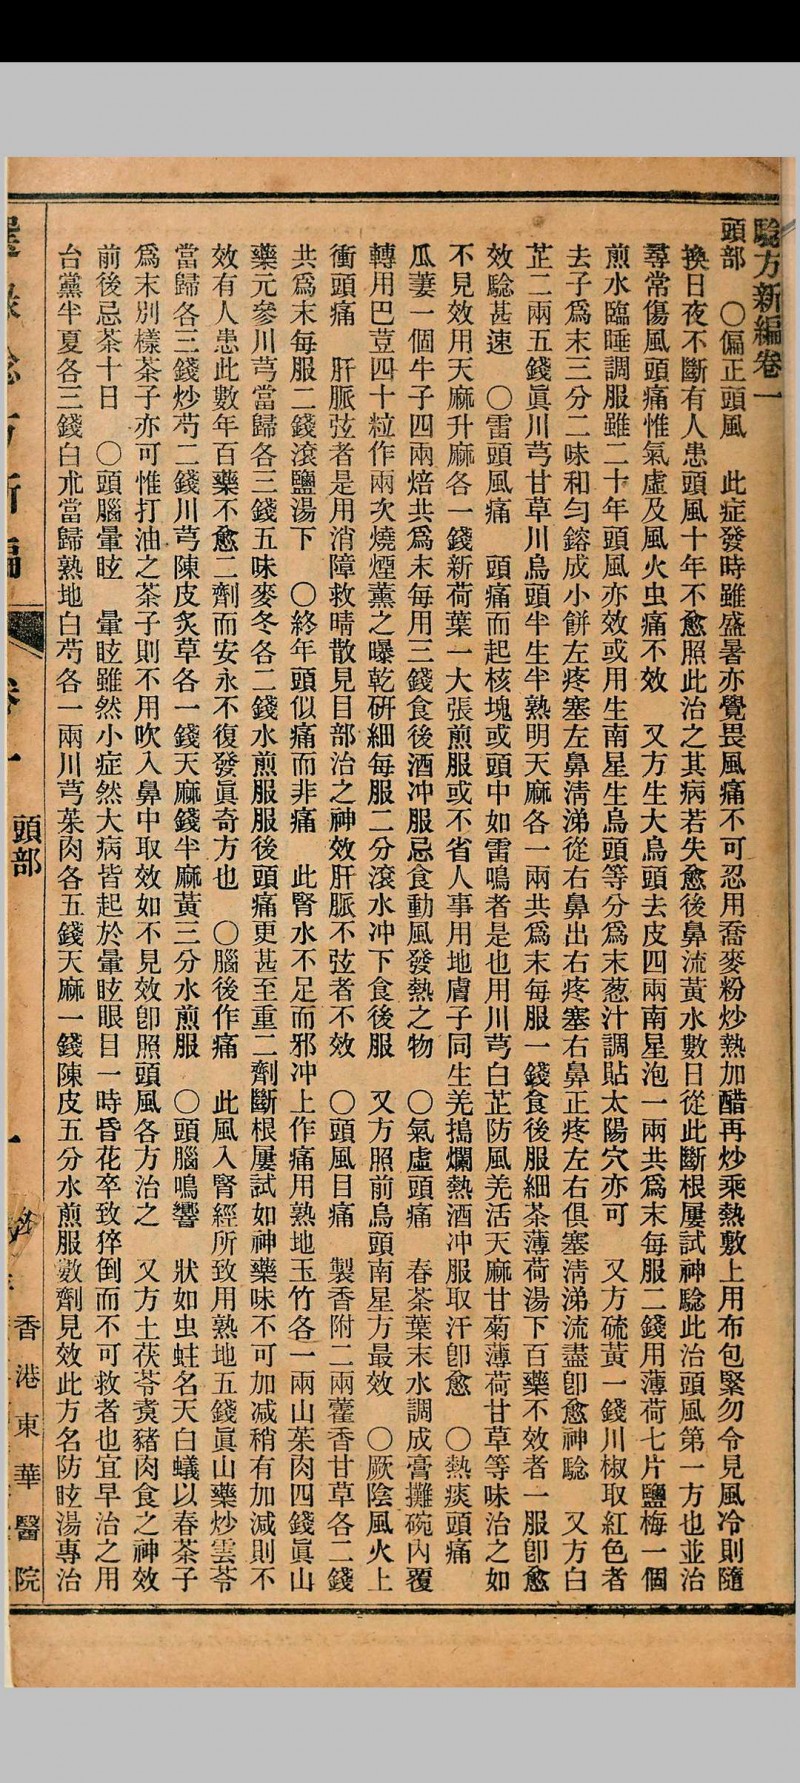 驗方新編卷一
頭部　〇偏正頭風　此症發時雖盛暑亦覺畏風痛不可忍用喬麥粉炒熱加醋再炒乘熱敷上用布包緊勿令見風冷則隨
換日夜不斷有人患頭風十年不愈照此治之其病若失愈後鼻流黃水數日從此斷根屢試神騐此治頭風第一方也並治
尋常傷風頭痛惟氣虛及風火虫痛不效　又方生大烏頭去皮四兩南星泡一兩共爲末每服二錢用薄荷七片鹽梅一個
煎水臨睡調服雖二十年頭風亦效或用生南星生烏頭等分爲末葱汁調貼太陽穴亦可　又方硫黃一錢川椒取紅色者
去子爲末三分二味和勻鎔成小餅左疼塞左鼻淸涕從右鼻出右疼塞右鼻正疼左右俱塞淸涕流盡卽愈神騐　又方白
芷二兩五錢眞川芎甘草川烏頭半生半熟明天麻各一兩共爲末每服一錢食後服細茶薄荷湯下百藥不效者一服卽愈
效騐甚速　〇雷頭風痛　頭痛而起核塊或頭中如雷鳴者是也用川芎白芷防風羌活天麻甘菊薄荷甘草等味治之如
不見效用天麻升麻各一錢新荷葉一大張煎服或不省人事用地膚子同生羌搗爛熱酒冲服取汗卽愈　〇熱痰頭痛
瓜蔞一個牛子四兩焙共爲末每用三錢食後酒冲服忌食動風發熱之物　〇氣虛頭痛　春茶葉末水調成膏攤碗內覆
轉用巴荳四十粒作兩次燒煙薰之曝乾研細每服二分滾水冲下食後服　又方照前烏頭南星方最效　〇厥陰風火上
衝頭痛　肝脈弦者是用消障救晴散見目部治之神效肝脈不弦者不效　〇頭風目痛　製香附二兩藿香甘草各二錢
共爲末每服二錢滾鹽湯下　〇終年頭似痛而非痛　此腎水不足而邪冲上作痛用熟地玉竹各一兩山茱肉四錢眞山
藥元參川芎當歸各三錢五味麥冬各二錢水煎服服後頭痛更甚至重二劑斷根屢試如神藥味不可加减稍有加減則不
效有人患此數年百藥不愈二劑而安永不復發眞奇方也　〇腦後作痛　此風入腎經所致用熟地五錢眞山藥炒雲苓
當歸各三錢炒芍二錢川芎陳皮炙草各一錢天麻錢半麻黃三分水煎服　〇頭腦鳴響　狀如虫蛀名天白蟻以春茶子
爲末別樣茶子亦可惟打油之茶子則不用吹入鼻中取效如不見效卽照頭風各方治之　又方土茯苓煑豬肉食之神效
前後忌茶十日　〇頭腦暈眩　暈眩雖然小症然大病皆起於暈眩眼目一時昏花卒致猝倒而不可救者也宜早治之用
台黨半夏各三錢白朮當歸熟地白芍各一兩川芎茱肉各五錢天麻一錢陳皮五分水煎服數劑見效此方名防眩湯專治
卷一　頭部　一　香港東華醫院